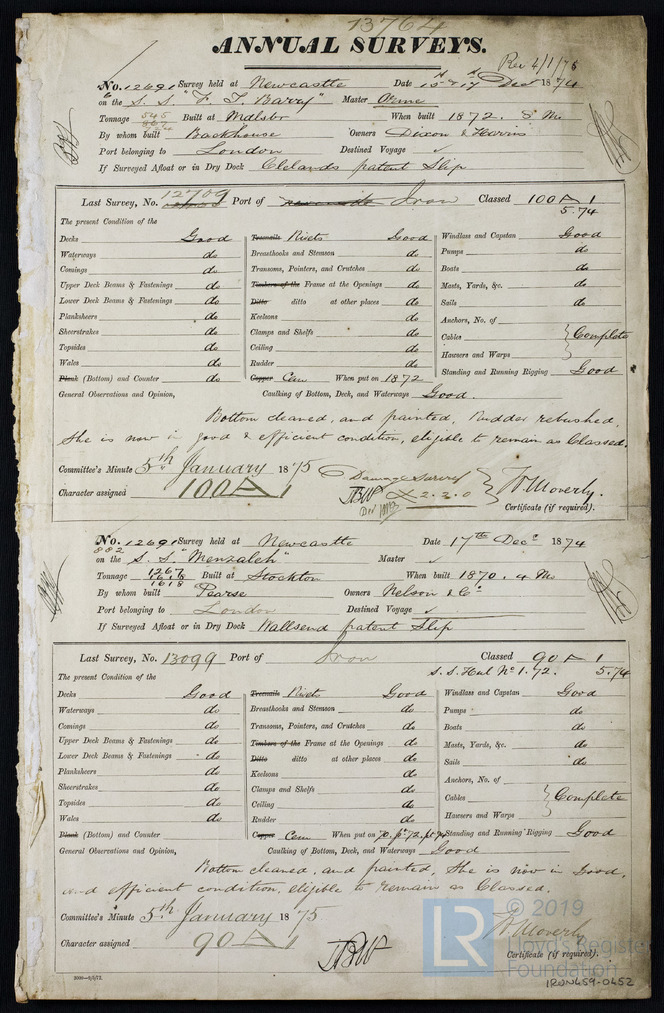 13764
ANNUAL SURVEYS.
Rec 4/1/75
No. 12691 Survey held at Newcastle Date 15th & 17th Dec 1874
on the S. S. "F. T. Barry" Master Orme
Tonnage 545 867 Built at Mdlsbr When built 1872. 8 Mo
By whom built Backhouse Owners Dixon & Harris
Port belonging to London Destined Voyage ✓
If Surveyed Afloat or in Dry Dock Clelands patent Slip
Last Survey, No. 12709 Port of Iron Classed 100 A 1
5.74
The present Condition of the
Decks Good Treenails Rivets Good Windlass and Capstan Good
Waterways do Breasthooks and Stemson do Pumps do
Comings do Transoms, Pointers, and Crutches do Boats do
Upper Deck Beams & Fastenings do Timbers of the Frame at the Openings do Masts, Yards, &c. do
Lower Deck Beams & Fastenings do Ditto ditto at other places do Sails do
Planksheers do Keelsons do Anchors, No. of
Sheerstrakes do Clamps and Shelfs do Cables } Complete
Topsides do Ceiling do Hawsers and Warps
Wales do Rudder do Standing and Running Rigging Good
Plank (Bottom) and Counter do Copper Cem When put on 1872
General Observations and Opinion, Caulking of Bottom, Deck, and Waterways Good.
Bottom cleaned, and painted, Rudder rebushed,
She is now in good & efficient condition, eligible to remain as Classed.
Committee's Minute 5th January 1875 Damage Survey
Character assigned 100 A 1 £2.2.0 } W. Moverly.
Certificate (if required).
No. 12691 Survey held at Newcastle Date 17th Decr 1874
882
on the S. S. "Menzaleh" Master ✓
Tonnage 1267 1618 1618 Built at Stockton When built 1870. 4 Mo
By whom built Pearse Owners Nelson & Co
Port belonging to London Destined Voyage ✓
If Surveyed Afloat or in Dry Dock Wallsend patent Slip
Last Survey, No. 13099 Port of Iron Classed 90 A 1
S. S. Hul No 1.72. 5.74
The present Condition of the
Decks Good Treenails Rivets Good Windlass and Capstan Good
Waterways do Breasthooks and Stemson do Pumps do
Comings do Transoms, Pointers, and Crutches do Boats do
Upper Deck Beams & Fastenings do Timbers of the Frame at the Openings do Masts, Yards, &c. do
Lower Deck Beams & Fastenings do Ditto ditto at other places do Sails do
Planksheers do Keelsons do Anchors, No. of
Sheerstrakes do Clamps and Shelfs do Cables } Complete
Topsides do Ceiling do Hawsers and Warps
Wales do Rudder do
Plank (Bottom) and Counter Copper Cem When put on 70. Standing and Running Rigging Good
General Observations and Opinion, Caulking of Bottom, Deck, and Waterways Good
Bottom cleaned, and painted, She is now in Good,
and efficient condition, eligible to remain as Classed.
Committee's Minute 5th January 1875
Character assigned 90 A 1 W. Moverly
Certificate (if required).
LR © 2019
Lloyd's Register
Foundation
IRON459-0452